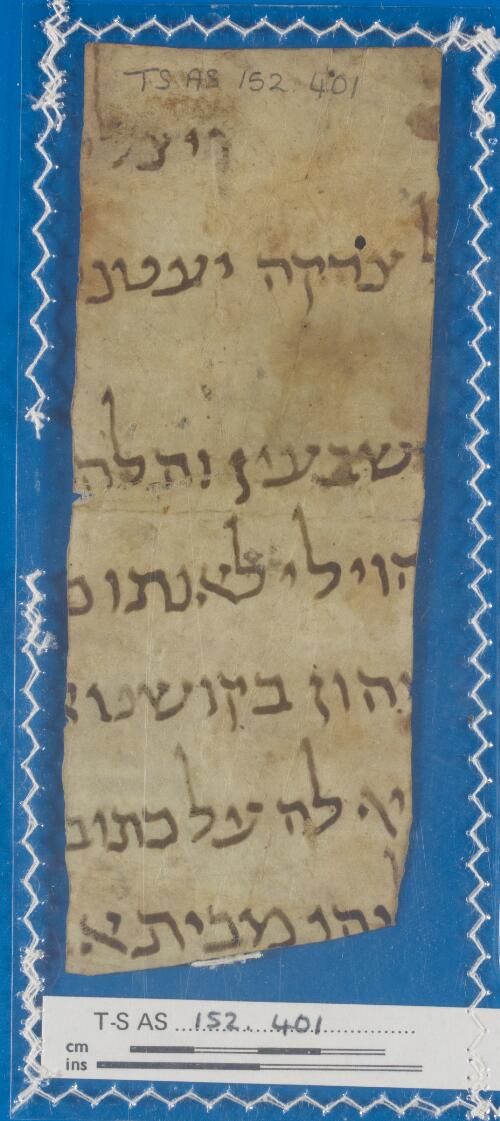 T-S AS 152.401
ויצל
צדקה יעטנ
שבעין והלה
הוי לי לאנתו כ
הון בקושטא
לה על כתוב
יהו מבית א
T-S AS 152. 401
cm
ins